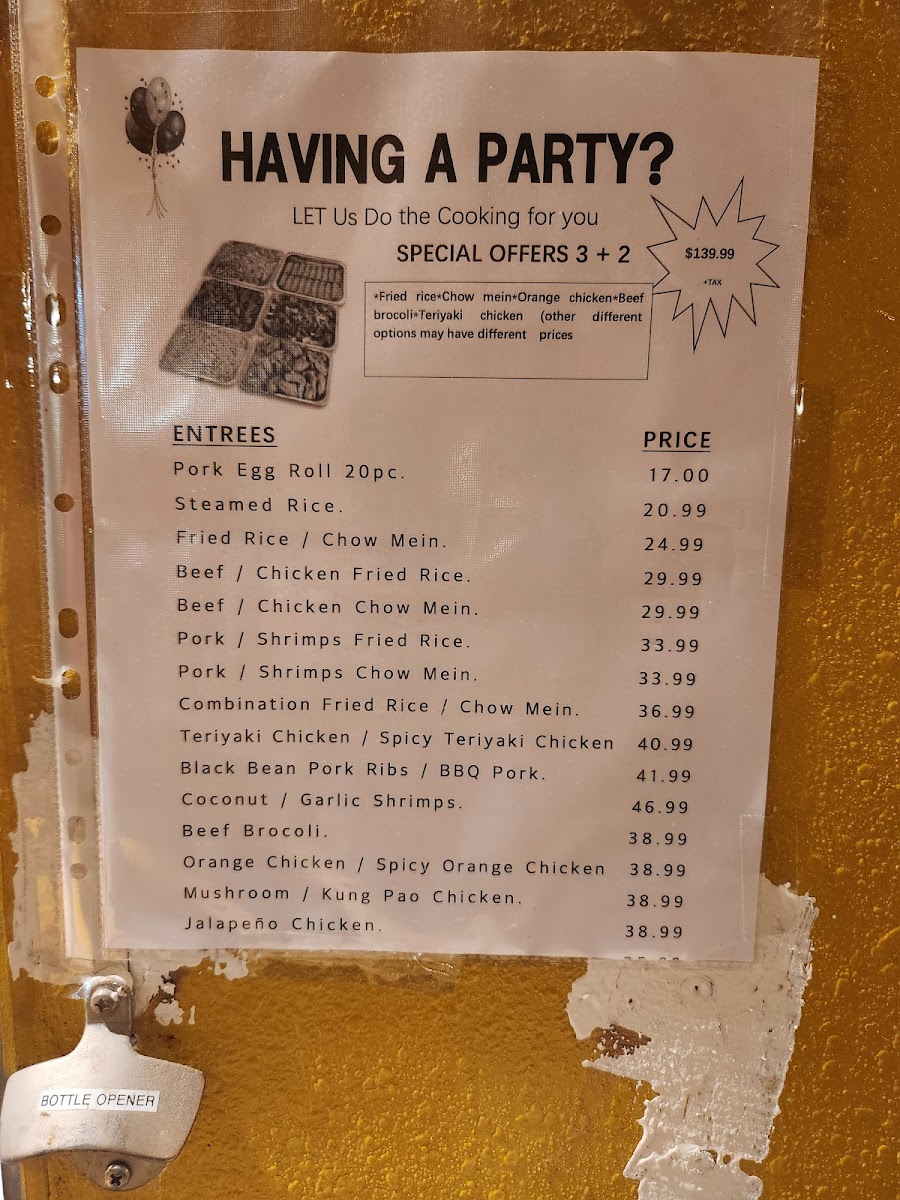 HAVING A PARTY?
LET Us Do the Cooking for you
SPECIAL OFFERS 3 + 2
$139.99
+TAX
*Fried rice*Chow mein*Orange chicken*Beef
brocoli*Teriyaki chicken (other different
options may have different prices
ENTREES PRICE
Pork Egg Roll 20pc. 17.00
Steamed Rice. 20.99
Fried Rice / Chow Mein. 24.99
Beef / Chicken Fried Rice. 29.99
Beef / Chicken Chow Mein. 29.99
Pork / Shrimps Fried Rice. 33.99
Pork / Shrimps Chow Mein. 33.99
Combination Fried Rice / Chow Mein. 36.99
Teriyaki Chicken / Spicy Teriyaki Chicken 40.99
Black Bean Pork Ribs / BBQ Pork. 41.99
Coconut / Garlic Shrimps. 46.99
Beef Brocoli. 38.99
Orange Chicken / Spicy Orange Chicken 38.99
Mushroom / Kung Pao Chicken. 38.99
Jalapeño Chicken. 38.99
BOTTLE OPENER